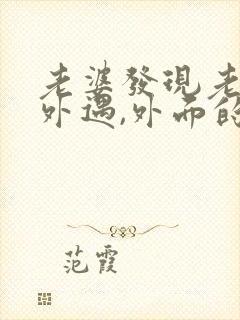 老婆發現老
外遇,外面的
范霞